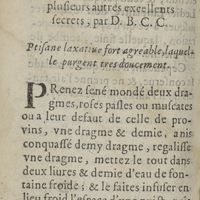 plusieurs autres excellents
secrets, par D. B. C. C.
Ptisane laxatiue fort agreable, laquel-
le purgent tres doucement.
PRenez sené mondé deux dra-
gmes, roses pasles ou muscates
ou a leur defaut de celle de pro-
uins, vne dragme & demie, anis
conquassé demy dragme, regalisse
vne dragme, mettez le tout dans
deux liures & demie d'eau de fon-
taine froide; & le faites infuser en
lieu froid l'espace d'une nuict